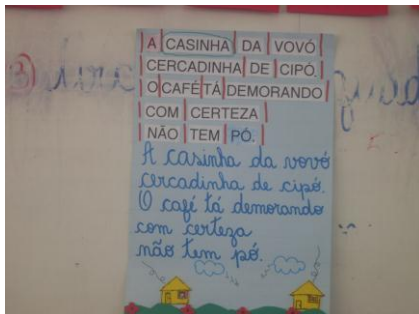 A CASINHA DA VOVÓ
CERCADINHA DE CIPÓ.
O CAFÉ TÁ DEMORANDO
COM CERTEZA
NÃO TEM PÓ.
A casinha da vovó
cercadinha de cipó.
O café tá demorando
com certeza
não tem pó.